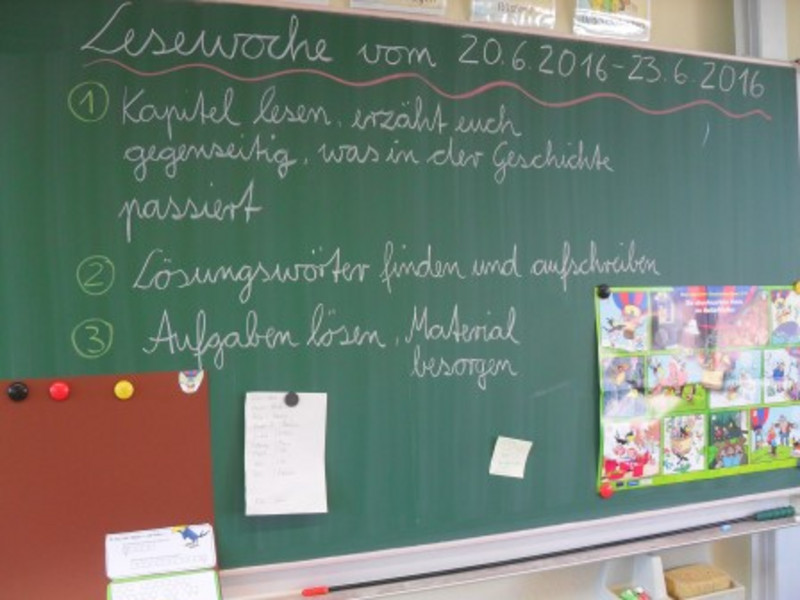 Lesewoche vom 20.6.2016-23.6.2016
1 Kapitel lesen, erzählt euch
gegenseitig, was in der Geschichte
passiert
2 Lösungswörter finden und aufschreiben
3 Aufgaben lösen, Material
besorgen